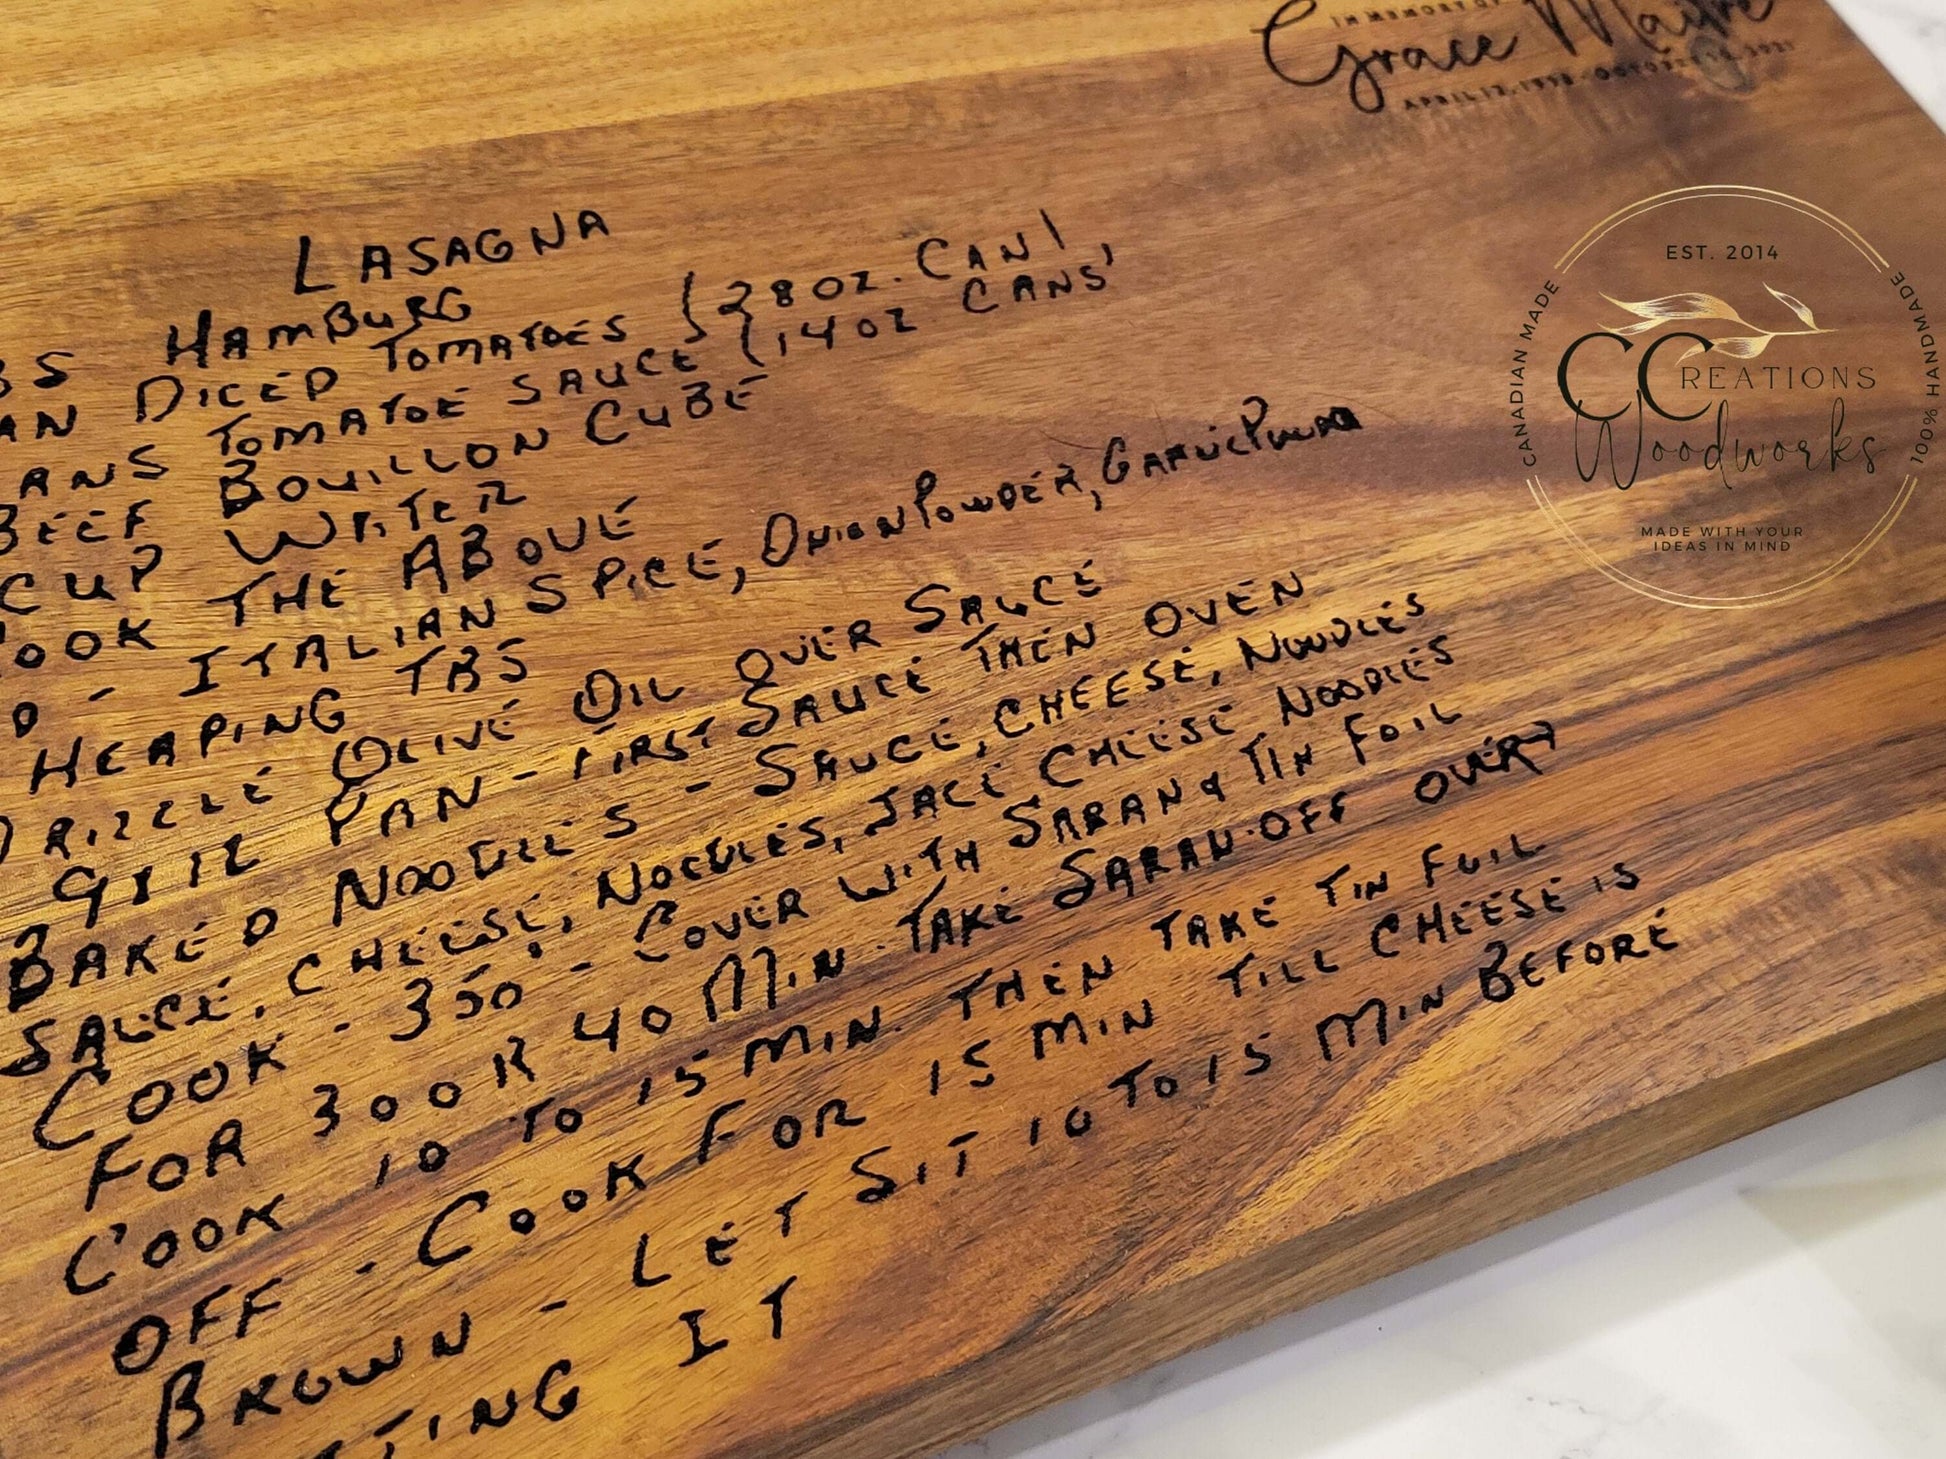 IN MEMORY OF
Grace
APRIL 17, 1938 - OCTOBER 2021
LASAGNA
BS HAMBURG
AN DICED TOMATOES { 28 OZ. CAN 1,
ANS TOMATOE SAUCE { 14 OZ CANS,
BEEF BOUILLON CUBE
CUP WATER
OOK THE ABOVE
D - ITALIAN SPICE, ONION POWDER, GARLIC POWDER
HEAPING TBS
DRIZZLE OLIVE OIL OVER SAUCE
9X12 PAN - FIRST SAUCE THEN OVEN
BAKED NOODLES - SAUCE, CHEESE, NOODLES
SAUCE, CHEESE, NOODLES, SAUCE CHEESE NOODLES
COOK - 350° - COVER WITH SARAN & TIN FOIL
FOR 30 OR 40 MIN. TAKE SARAN OFF OVER
COOK 10 TO 15 MIN. THEN TAKE TIN FOIL
OFF - COOK FOR 15 MIN TILL CHEESE IS
BROWN - LET SIT 10 TO 15 MIN BEFORE
TING IT
EST. 2014
CANADIAN MADE
100% HANDMADE
CCREATIONS
Woodworks
MADE WITH YOUR
IDEAS IN MIND